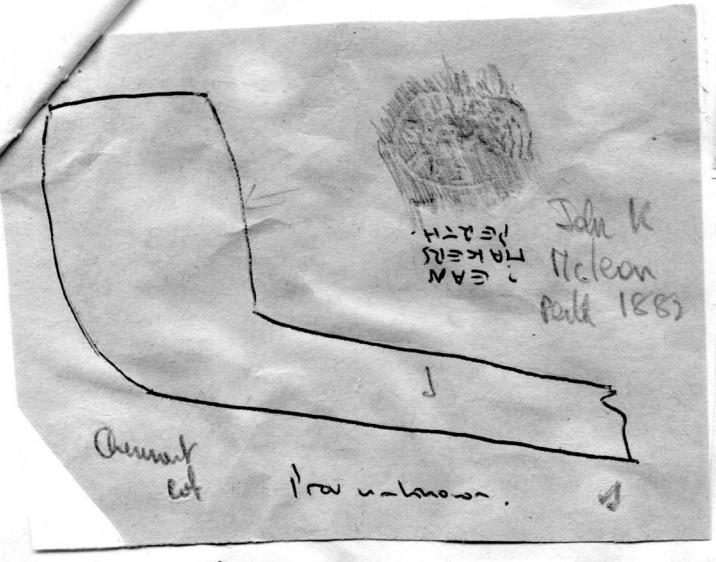 ? EAN
MAKERS
PERTH.
John K
McLean
Perth 1882
Prov unknown.